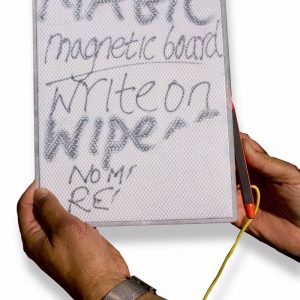 MAGIC
magnetic board
write on
WIPE
NO